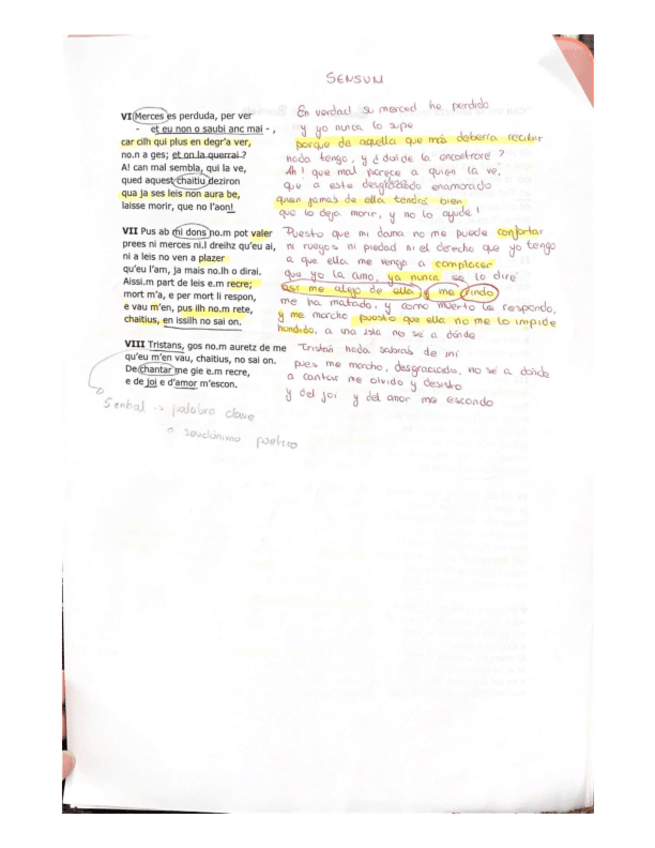 SENSUM
VI Merces es perduda, per ver
- et eu non o saubi anc mai - ,
car cilh qui plus en degr'a ver,
no.n a ges; et on la querrai ?
A! can mal sembla, qui la ve,
qued aquest chaitiu deziron
qua ja ses leis non aura be,
laisse morir, que no l'aon!
En verdad la merced he perdido
y yo nunca lo supe
porque de aquella que más deberra recibir
nada tengo, y ¿dónde la encontraré?
Ah! que mal parece a quien la ve,
que a este desgraciado enamorado
quien jamas de ella tendrá bien
que lo deja morir, y no lo ayude!
VII Pus ab mi dons no.m pot valer
prees ni merces ni.l dreihz qu'eu ai,
ni a leis no ven a plazer
qu'eu l'am, ja mais no.lh o dirai.
Aissi.m part de leis e.m recre;
mort m'a, e per mort li respon,
e vau m'en, pus ilh no.m rete,
chaitius, en issilh no sai on.
Puesto que mi dama no me puede confortar
ni ruegos ni piedad ni el derecho que yo tengo
a que ella me venga a complacer
que yo la amo, ya nunca se lo diré
así me alejo de ella y me rindo
me ha matado, y como muerto le respondo,
y me marcho puesto que ella no me lo impide
hundido, a una isla no sé a dónde
VIII Tristans, gos no.m auretz de me
qu'eu m'en vau, chaitius, no sai on.
De chantar me gie e.m recre,
e de joi e d'amor m'escon.
Tristán nada sabrás de mi
pues me marcho, desgraciado, no sé a dónde
a cantar me olvido y desisto
y del joi y del amor me escondo
Senhal → palabra clave
o seudónimo poético